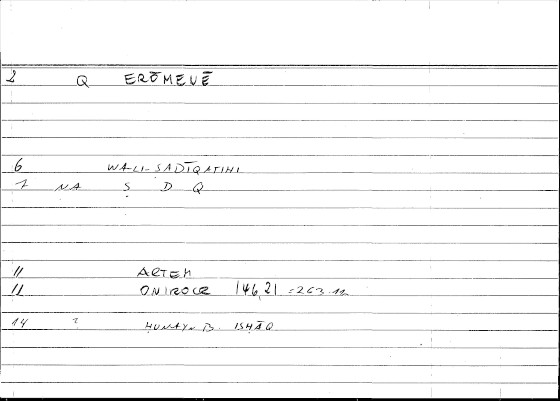 2 Q ERŌMENĒ
6 WA-LI-ṢADĪQATIHI
7 NA Ṣ D Q
11 ARTEM
12 ONIROCR 146,21 = 263.12
14 ḤUNAYN B. ISḤĀQ